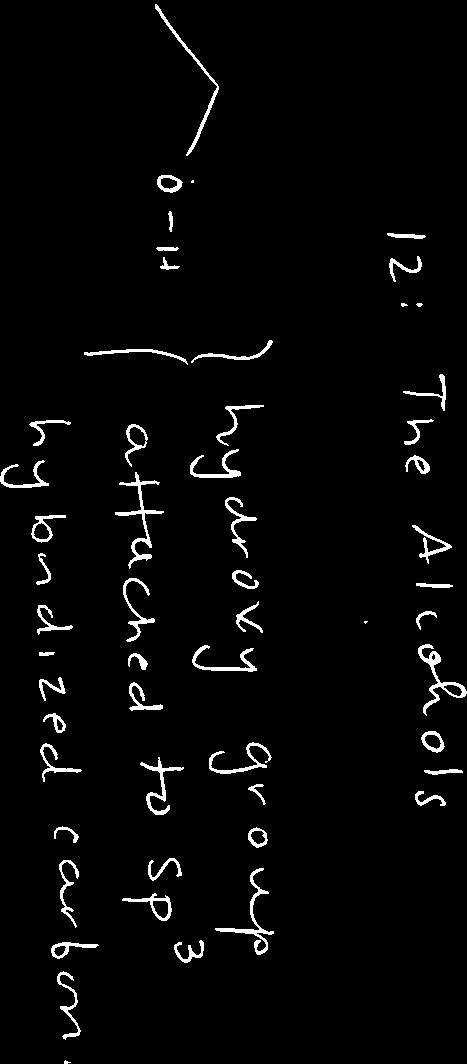 12: The Alcohols
Ö-H
hydroxy group
attached to sp³
hybridized carbon.